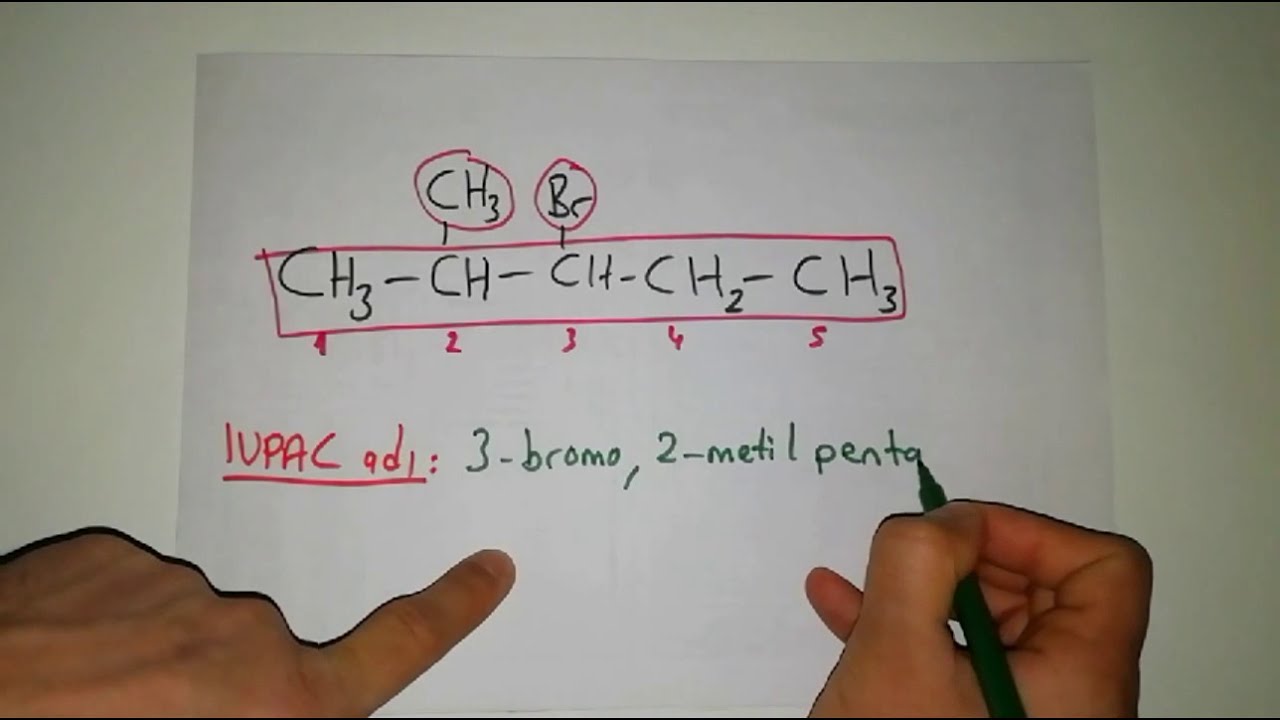 CH₃ Br
CH₃-CH-CH-CH₂-CH₃
1 2 3 4 5
IUPAC adı: 3-bromo, 2-metil penta